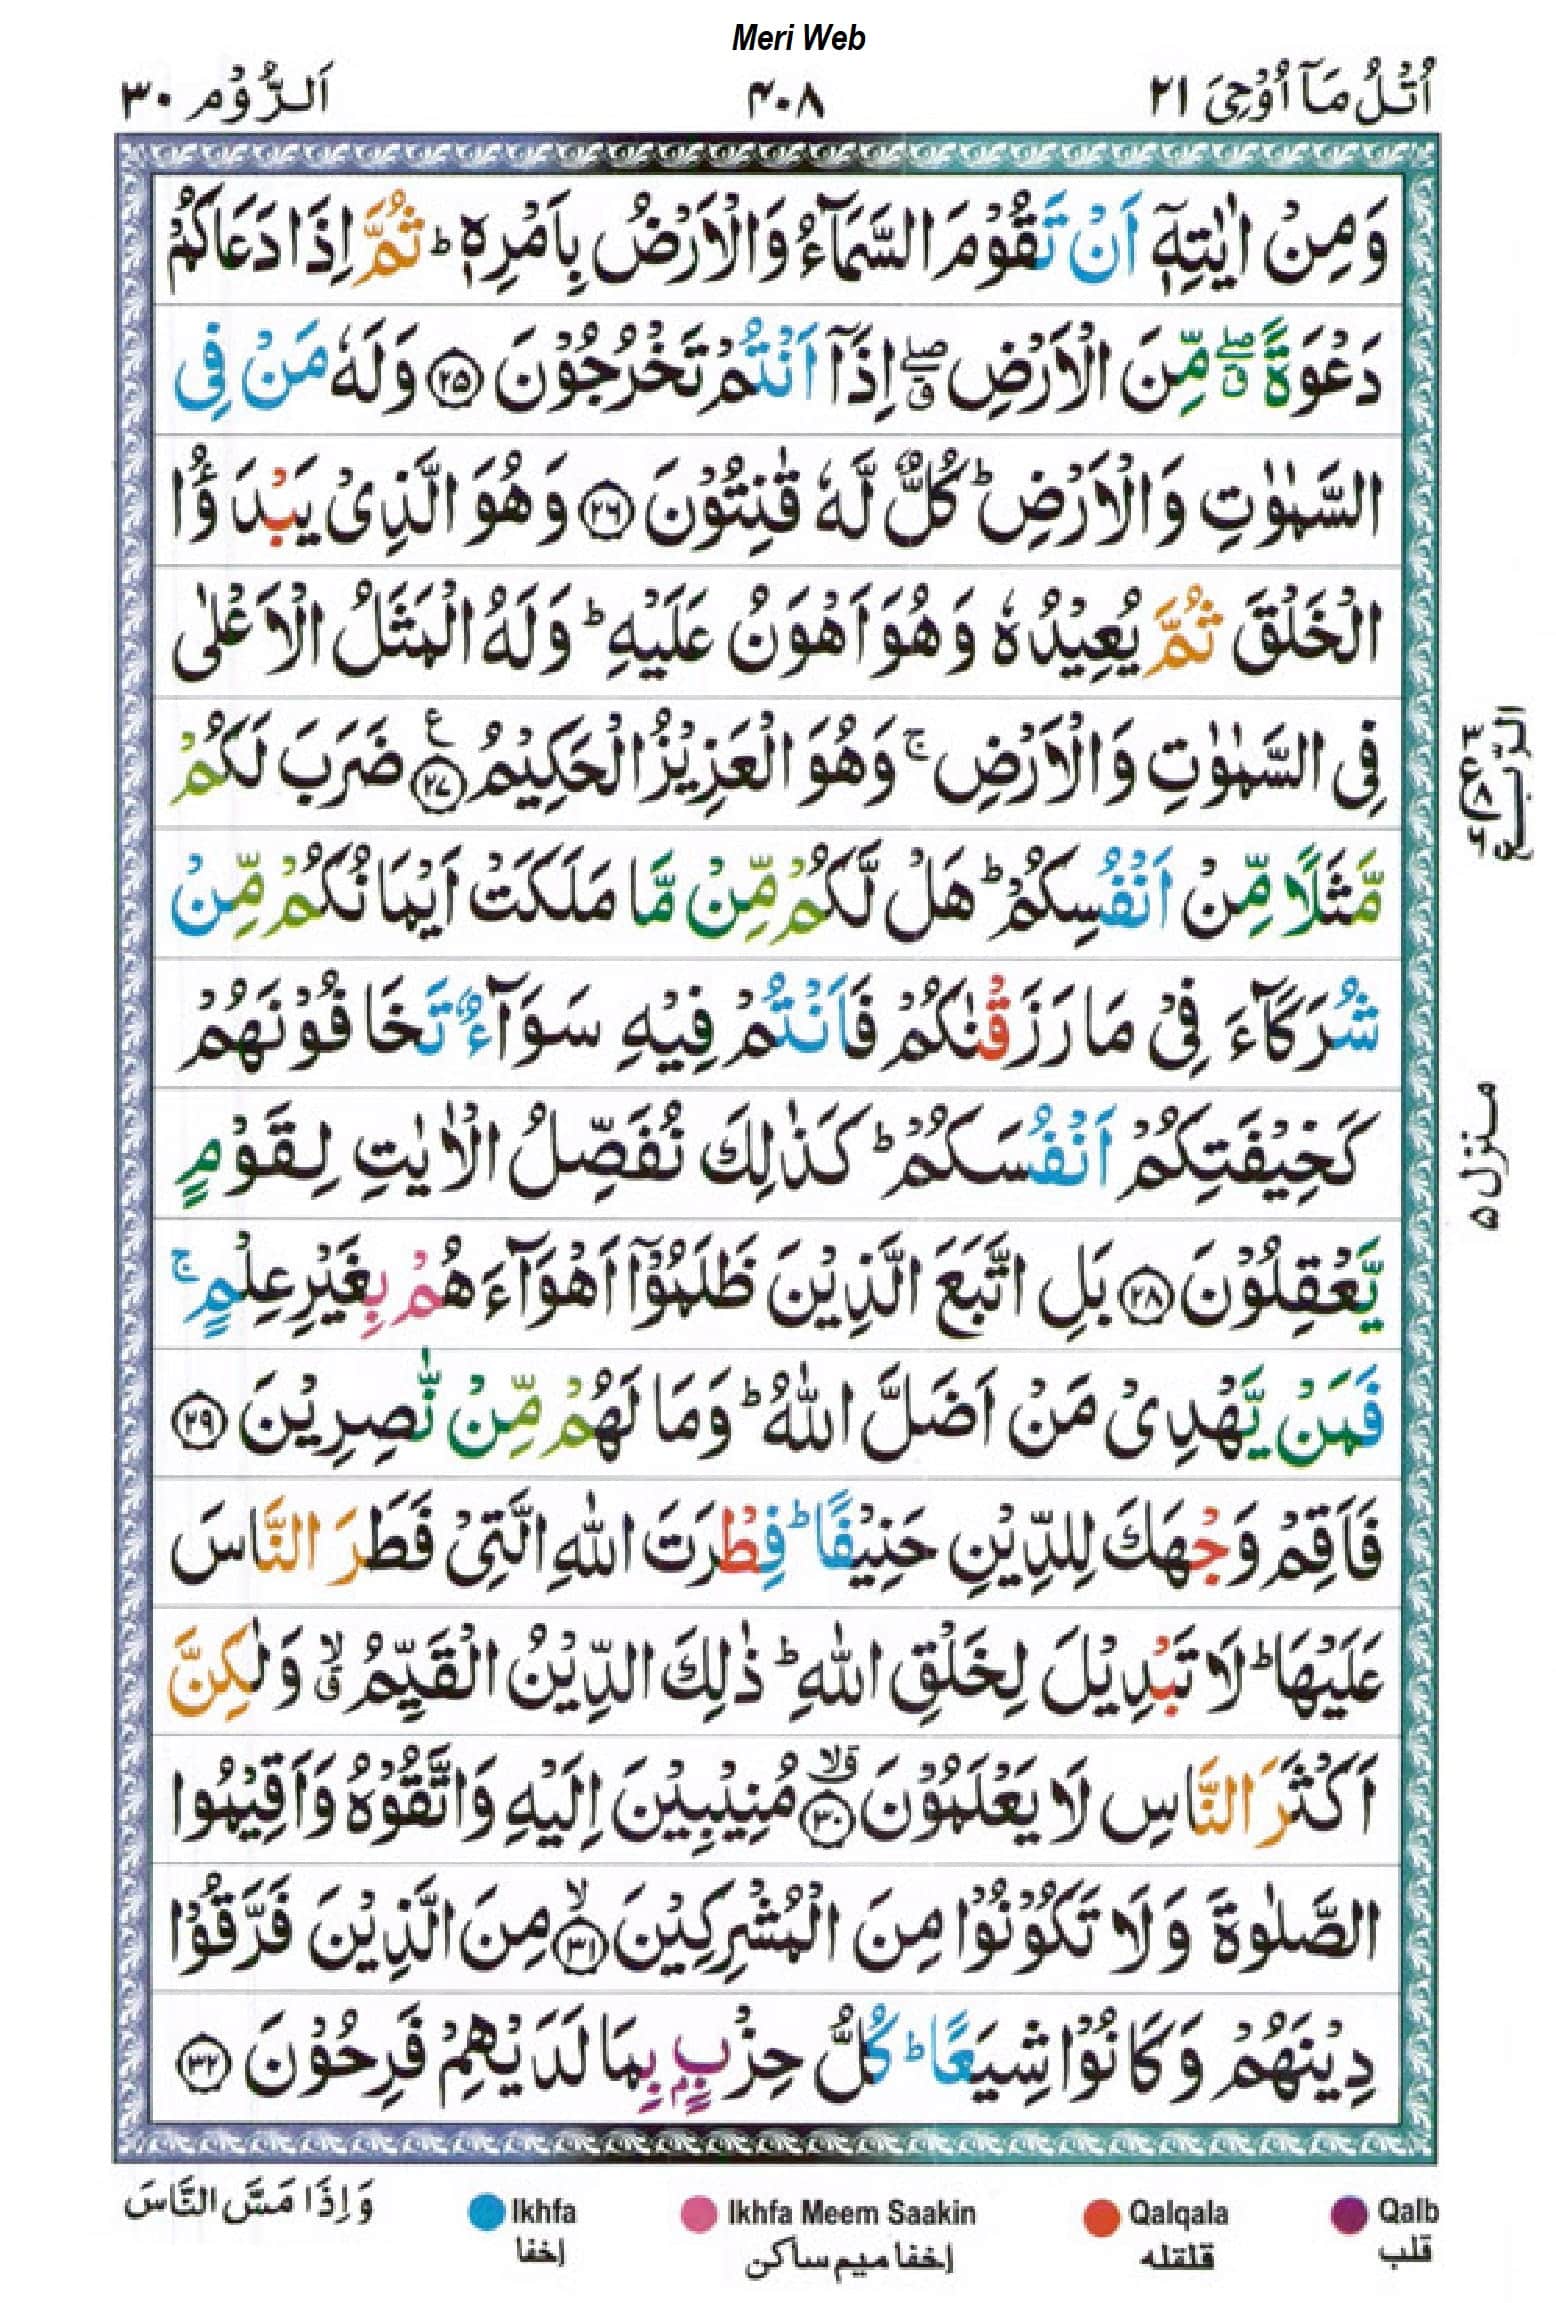 Meri Web
اُتْلُ مَآ اُوْحِیَ ٢١
٤٠٨
اَلرُّوْم ٣٠
وَمِنْ اٰیٰتِهٖۤ اَنْ تَقُوْمَ السَّمَآءُ وَالْاَرْضُ بِاَمْرِهٖ ؕ ثُمَّ اِذَا دَعَاكُمْ
دَعْوَةً ۖۗ مِّنَ الْاَرْضِ ۖۗ اِذَاۤ اَنْتُمْ تَخْرُجُوْنَ ﴿٢٥﴾ وَلَهٗ مَنْ فِی
السَّمٰوٰتِ وَالْاَرْضِ ؕ كُلٌّ لَّهٗ قٰنِتُوْنَ ﴿٢٦﴾ وَهُوَ الَّذِیْ یَبْدَؤُا
الْخَلْقَ ثُمَّ یُعِیْدُهٗ وَهُوَ اَهْوَنُ عَلَیْهِ ؕ وَلَهُ الْمَثَلُ الْاَعْلٰی
فِی السَّمٰوٰتِ وَالْاَرْضِ ۚ وَهُوَ الْعَزِیْزُ الْحَكِیْمُ ﴿٢٧﴾ ع ضَرَبَ لَكُمْ
مَّثَلًا مِّنْ اَنْفُسِكُمْ ؕ هَلْ لَّكُمْ مِّنْ مَّا مَلَكَتْ اَیْمَانُكُمْ مِّنْ
شُرَكَآءَ فِیْ مَا رَزَقْنٰكُمْ فَاَنْتُمْ فِیْهِ سَوَآءٌ تَخَافُوْنَهُمْ
كَخِیْفَتِكُمْ اَنْفُسَكُمْ ؕ كَذٰلِكَ نُفَصِّلُ الْاٰیٰتِ لِقَوْمٍ
یَّعْقِلُوْنَ ﴿٢٨﴾ بَلِ اتَّبَعَ الَّذِیْنَ ظَلَمُوْۤا اَهْوَآءَهُمْ بِغَیْرِ عِلْمٍ ۚ
فَمَنْ یَّهْدِیْ مَنْ اَضَلَّ اللّٰهُ ؕ وَمَا لَهُمْ مِّنْ نّٰصِرِیْنَ ﴿٢٩﴾
فَاَقِمْ وَجْهَكَ لِلدِّیْنِ حَنِیْفًا ؕ فِطْرَتَ اللّٰهِ الَّتِیْ فَطَرَ النَّاسَ
عَلَیْهَا ؕ لَا تَبْدِیْلَ لِخَلْقِ اللّٰهِ ؕ ذٰلِكَ الدِّیْنُ الْقَیِّمُ ۙۗ وَلٰكِنَّ
اَكْثَرَ النَّاسِ لَا یَعْلَمُوْنَ ﴿٣٠﴾ ۗۙ مُنِیْبِیْنَ اِلَیْهِ وَاتَّقُوْهُ وَاَقِیْمُوا
الصَّلٰوةَ وَلَا تَكُوْنُوْا مِنَ الْمُشْرِكِیْنَ ﴿٣١﴾ ۙ مِنَ الَّذِیْنَ فَرَّقُوْا
دِیْنَهُمْ وَكَانُوْا شِیَعًا ؕ كُلُّ حِزْبٍۭ بِمَا لَدَیْهِمْ فَرِحُوْنَ ﴿٣٢﴾
الرّبع
منزل ۵
وَاِذَا مَسَّ النَّاسَ
Ikhfa
إخفا
Ikhfa Meem Saakin
إخفا میم ساکن
Qalqala
قلقله
Qalb
قلب